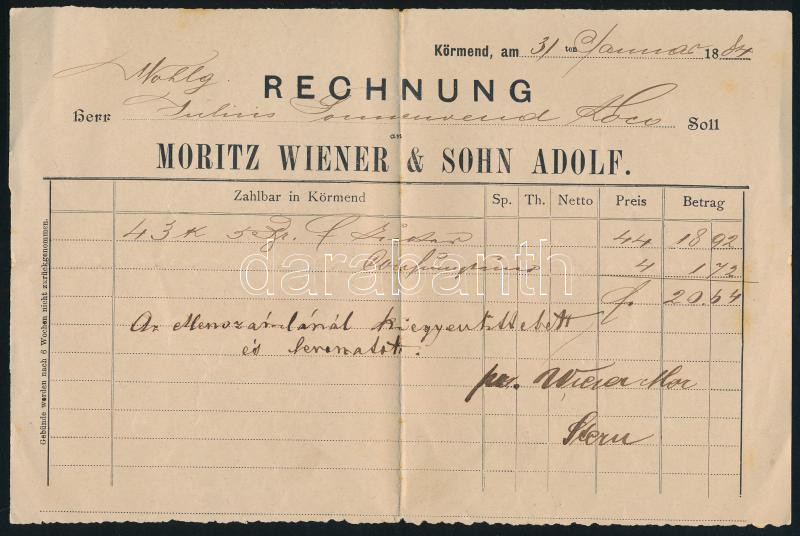 Körmend, am 31 ten Januar 1884
Wohlg.
RECHNUNG
Herr Julius Sonnenwend Loco Soll
an
MORITZ WIENER & SOHN ADOLF.
Zahlbar in Körmend Sp. Th. Netto Preis Betrag
43 K 5 Gr. 44 18 92
4 1 72
f. 20.64
Az elenszámlánál kiegyenlittetett
és levonatott.
pr. Wiener Mor
Stern
Gebünde werden nach 6 Wochen nicht zurückgenommen.
darabanth